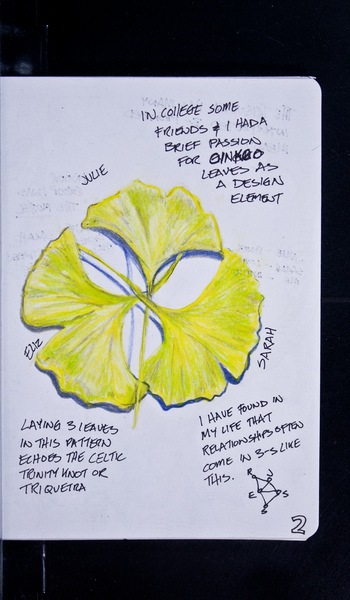 IN COLLEGE SOME
FRIENDS & I HAD A
BRIEF PASSION
FOR GINKGO
LEAVES AS
A DESIGN
ELEMENT
JULIE
ELIZ
SARAH
LAYING 3 LEAVES
IN THIS PATTERN
ECHOES THE CELTIC
TRINITY KNOT OR
TRIQUETRA
I HAVE FOUND IN
MY LIFE THAT
RELATIONSHIPS OFTEN
COME IN 3-S LIKE
THIS.
R
J
E
S
S
2